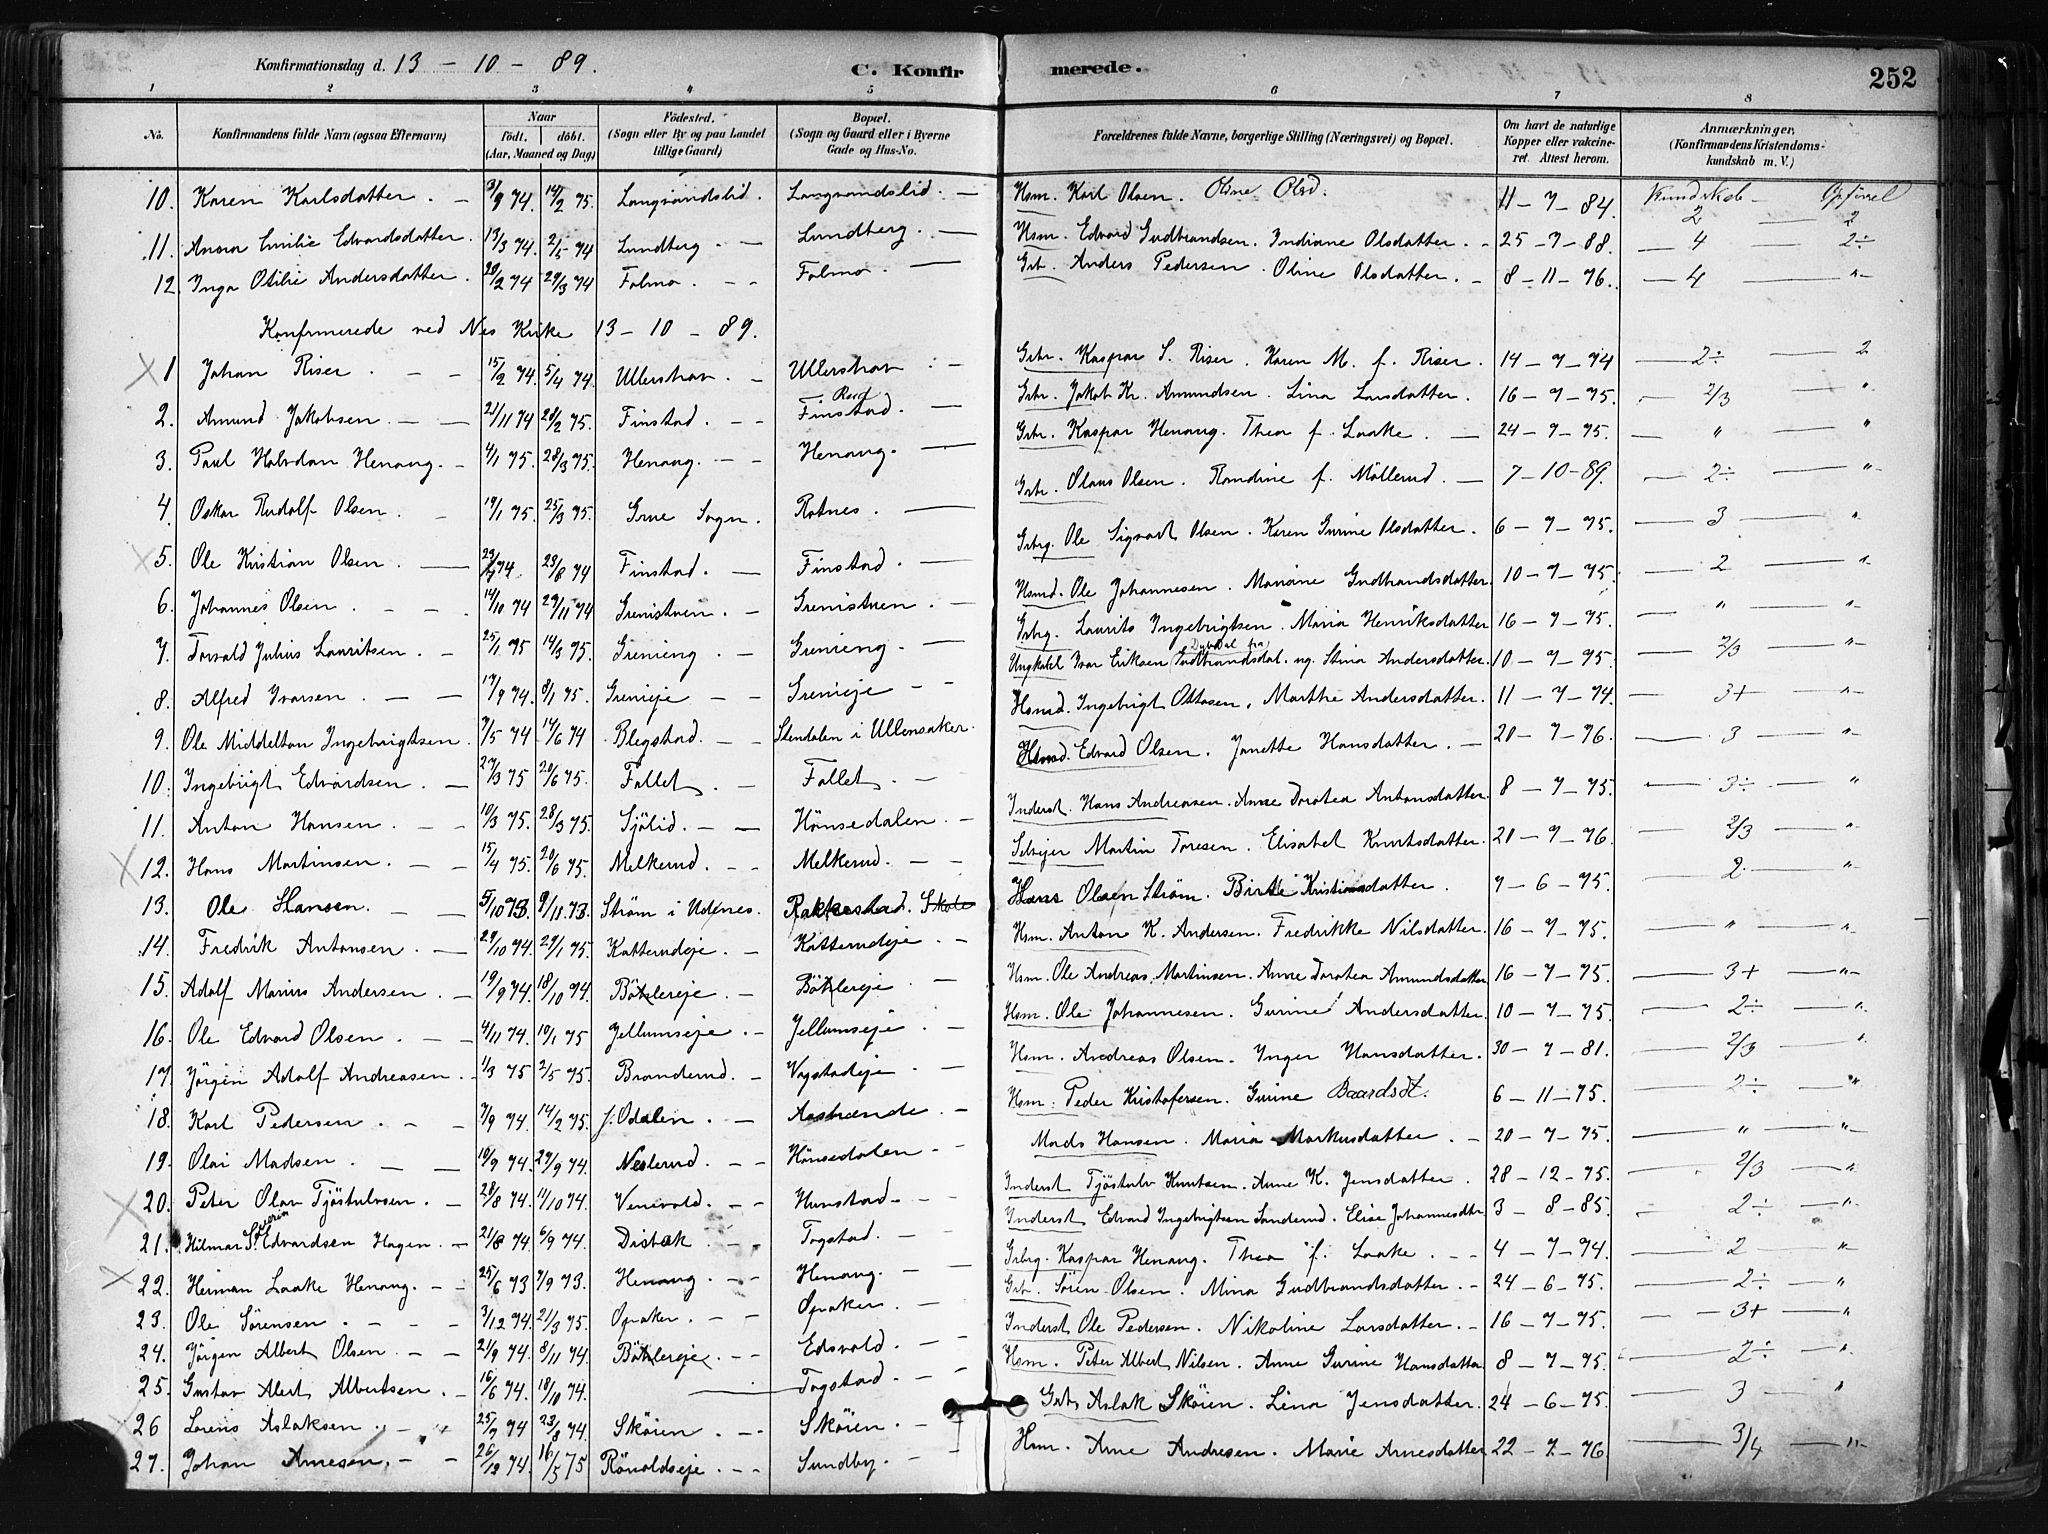 Konfirmationsdag d. 13 - 10 - 89. C. Konfirmerede. 252
1 2 3 4 5 6 7 8
No. Konfirmandens fulde Navn (ogsaa Efternavn) Naar födt. döbt. (Aar, Maaned og Dag) Födested. (Sogn eller By og paa Landet tillige Gaard) Bopæl. (Sogn og Gaard eller i Byerne Gade og Hus-No. Forældrenes fulde Navne, borgerlige Stilling (Næringsvei) og Bopæl. Om havt de naturlige Kopper eller vakcineret. Attest herom. Anmærkninger, (Konfirmandens Kristendomskundskab m. V.)
10. Karen Karlsdatter. 3/9 74. 14/2 75. Langrandslid. Langrandslid. Hsm. Karl Olsen. Olsd. 11 - 7 - 84. Kundskab 2 Opførsel 2
11. Anna Emilie Edvardsdatter. 13/3 74. 2/5 74 Lundberg. Lundberg. Hsm. Edvard Gudbrandsen. Indiane Olsdatter. 25 - 7 - 88. 4 2÷
12. Inga Otilie Andersdatter. 20/2 74 29/3 74 Folmo. Folmo. Grb. Anders Pedersen. Oline Olsdatter. 8 - 11 - 76. 4 "
Konfirmerede ved Nes Kirke 13 - 10 - 89.
1 Johan Riser. 15/2 74. 5/4 74. Ullershov. Ullershov. Grbr. Kaspar S. Riser. Karen M. f. Riser. 14 - 7 - 74 2÷ 2
2. Amund Jakobsen. 21/11 74 28/2 75. Finstad. Rud Finstad. Grbr. Jakob Kr. Amundsen. Lina Larsdatter. 16 - 7 - 75. 2/3 "
3. Paul Halvdan Henaug. 4/1 75. 28/3 75. Henaug. Henaug. Grbr. Kaspar Henaug. Thea f. Laake. 24 - 7 - 75. " "
4. Oskar Rudolf Olsen. 19/1 75. 25/3 75. Grue Sogn. Rotnes. Grbr. Olaus Olsen. Randine f. Möllerud. 7 - 10 - 89. 2÷ "
5. Ole Kristian Olsen. 74. 23/8 74 Finstad. Finstad. Grbrg. Ole Sigvart Olsen. Karen Gurine Olsdatter. 6 - 7 - 75. 3 "
6. Johannes Olsen. 14/10 74 29/11 74 Grenistuen. Grenistuen. Hsmd. Ole Johannesen. Mariane Gudbrandsdatter. 10 - 7 - 75. 2 "
7. Torvald Julius Lauritsen. 25/1 75 14/3 75. Grenieng. Grenieng. Grbrg. Laurits Ingebrigtsen. Maria Henriksdatter 16 - 7 - 75. " "
8. Alfred Ivarsen. 17/9 74. 8/1 75. Grenieje Grenieje Ungkarl Ivar Eriksen fra Gudbrandsdal. ug. Stina Andersdatter. 10 - 7 - 75. 2/3 "
9. Ole Middelton Ingebrigtsen. 7/5 74 14/6 74 Blegstad. Stendalen i Ullensaker. Hsmd. Ingebrigt Ottosen. Marthe Andersdatter. 11 - 7 - 74. 3+ "
10. Ingebrigt Edvardsen. 27/3 75 20/6 75. Fallet. Fallet. Hsmd. Edvard Olsen. Janette Hansdatter. 20 - 7 - 76. 3 "
11. Anton Hansen. 10/3 75. 28/3 75. Sjölid. Hönsedalen. Inderst. Hans Andreasen. Anne Dorotea Antonsdatter. 8 - 7 - 75. 3÷ "
12. Hans Martinsen. 15/4 75. 20/6 75. Melkerud. Melkerud. Selvejer Martin Toresen. Elisabet Knutsdatter. 20 - 7 - 76. 2/3 "
13. Ole Hansen. 5/10 73. 9/11 73. Ström i Udenes. Rakkestad. Skole Hans Olsen Ström. Birte Kristiansdatter. 7 - 6 - 75. 2 "
14. Fredrik Antonsen. 29/10 74. 24/1 75. Katterudeje. Katterudeje. Hsm. Anton K. Andersen. Fredrikke Nilsdatter. 16 - 7 - 75. " "
15. Adolf Marius Andersen. 19/9 74. 18/10 74. Bötlereje. Bötlereje. Hsm. Ole Andreas Martinsen. Anne Dorotea Amundsdatter 16 - 7 - 75. 3+ "
16. Ole Edvard Olsen. 4/11 74. 10/1 75. Jellumseje. Jellumseje. Hsm. Ole Johannesen. Gurine Andersdatter. 10 - 7 - 75. 2÷ "
17. Jörgen Adolf Andreasen. 1/3 75 2/5 75. Branderud. Vogstadeje. Hsm. Andreas Olsen. Inger Hansdatter. 30 - 7 - 81. 2/3 "
18. Karl Pedersen. 7/9 74. 14/2 75. S. Odalen. Aastrænde. Hsm. Peder Kristofersen. Gurine Baardsdt. 6 - 11 - 75. 2÷ "
19. Olai Madsen. 10/9 74. 27/9 74. Neslerud. Hönsedalen. Mads Hansen. Maria Markusdatter. 20 - 7 - 75. " "
20. Peter Olav Tjöstulvsen. 28/8 74. 11/10 74. Venevold. Hunstad. Inderst Tjöstulv Knutsen. Anne K. Jensdatter. 28 - 12 - 75. 2/3 "
21. Hilmar Severin Edvardsen Hagen. 21/8 74. 6/9 74. Distak. Togstad. Inderst Edvard Ingebrigtsen Sanderud. Elise Johannesdtr. 3 - 8 - 85. 2÷ "
22. Herman Laake Henaug. 25/6 73 7/9 73. Henaug. Henaug. Grbrg. Kaspar Henaug. Thea f. Laake. 4 - 7 - 74. 2 "
23. Ole Sörensen. 3/12 74. 21/3 75. Opaker. Opaker. Grbr. Sören Olsen. Mina Gudbrandsdatter. 24 - 6 - 75. 2÷ "
24. Jörgen Albert Olsen. 21/9 74. 8/11 74. Bötlereje. Edsvold. Inderst Ole Pedersen. Nikoline Larsdatter. 16 - 7 - 75. 3+ "
25. Gustav Albert Albertsen. 16/6 74. 18/10 74. Togstad. Hsm. Peter Albert Nilsen. Anne Gurine Hansdatter 8 - 7 - 75. 2÷ "
26 Lorens Aslaksen. 25/7 74 23/8 74. Skören. Skören. Grb. Aslak Skören. Lina Jensdatter. 24 - 6 - 75. 3 "
27. Johan Arnesen. 26/12 74. 16/5 75 Rönoldseje. Sundby. Hsm. Arne Andresen. Marie Arnesdatter 22 - 7 - 76. 3/4 "